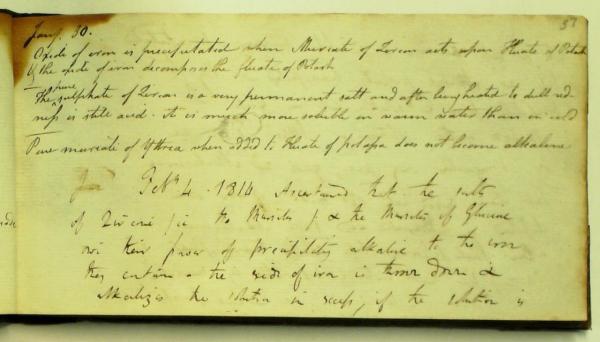 Jany. 30.
Oxide of iron is precipitated when Muriate of Zircon acts upon Fluate of Potash
If the oxide of iron decomposes the fluate of Potash
pure
The sulphate of Zircon is a very permanent salt and after being heated to dull red-
ness is still acid. it is much more soluble in warm water than in cold
Pure muriate of Yttria when added to Fluate of potassa does not become alkaline
Feby 4. 1814 Ascertained that the salts
of Zircone the Muriate & the Muriate of Glucine
owe their power of precipitating alkaline to the iron
they contain & the oxide of iron is thrown down &
alkalizes the solution in excess, if the solution is